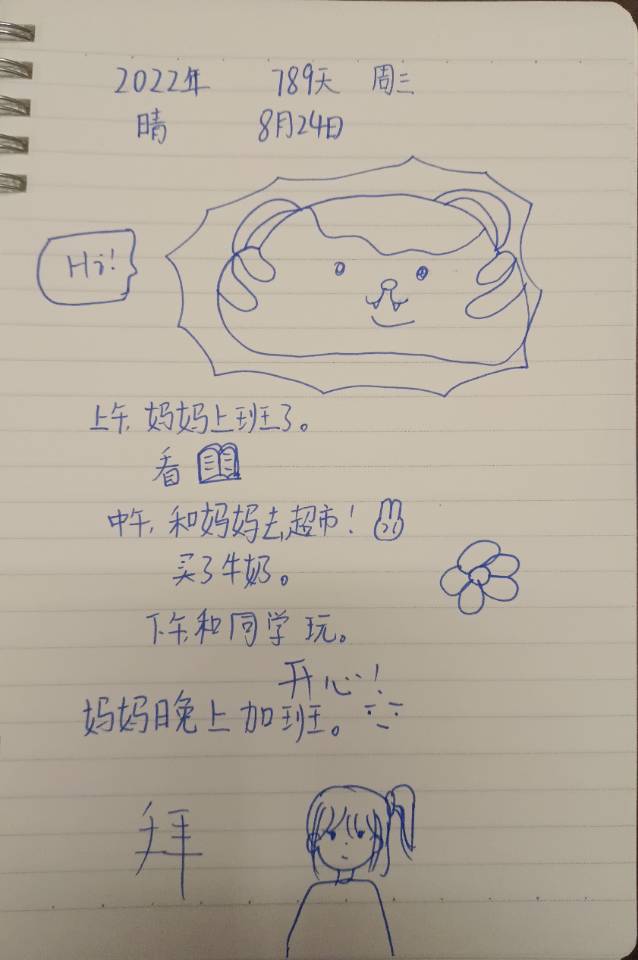 2022年 789天 周三
晴 8月24日
Hi!
上午,妈妈上班了。
看
中午,和妈妈去超市!
买了牛奶。
下午,和同学玩。
开心!
妈妈晚上加班。
拜